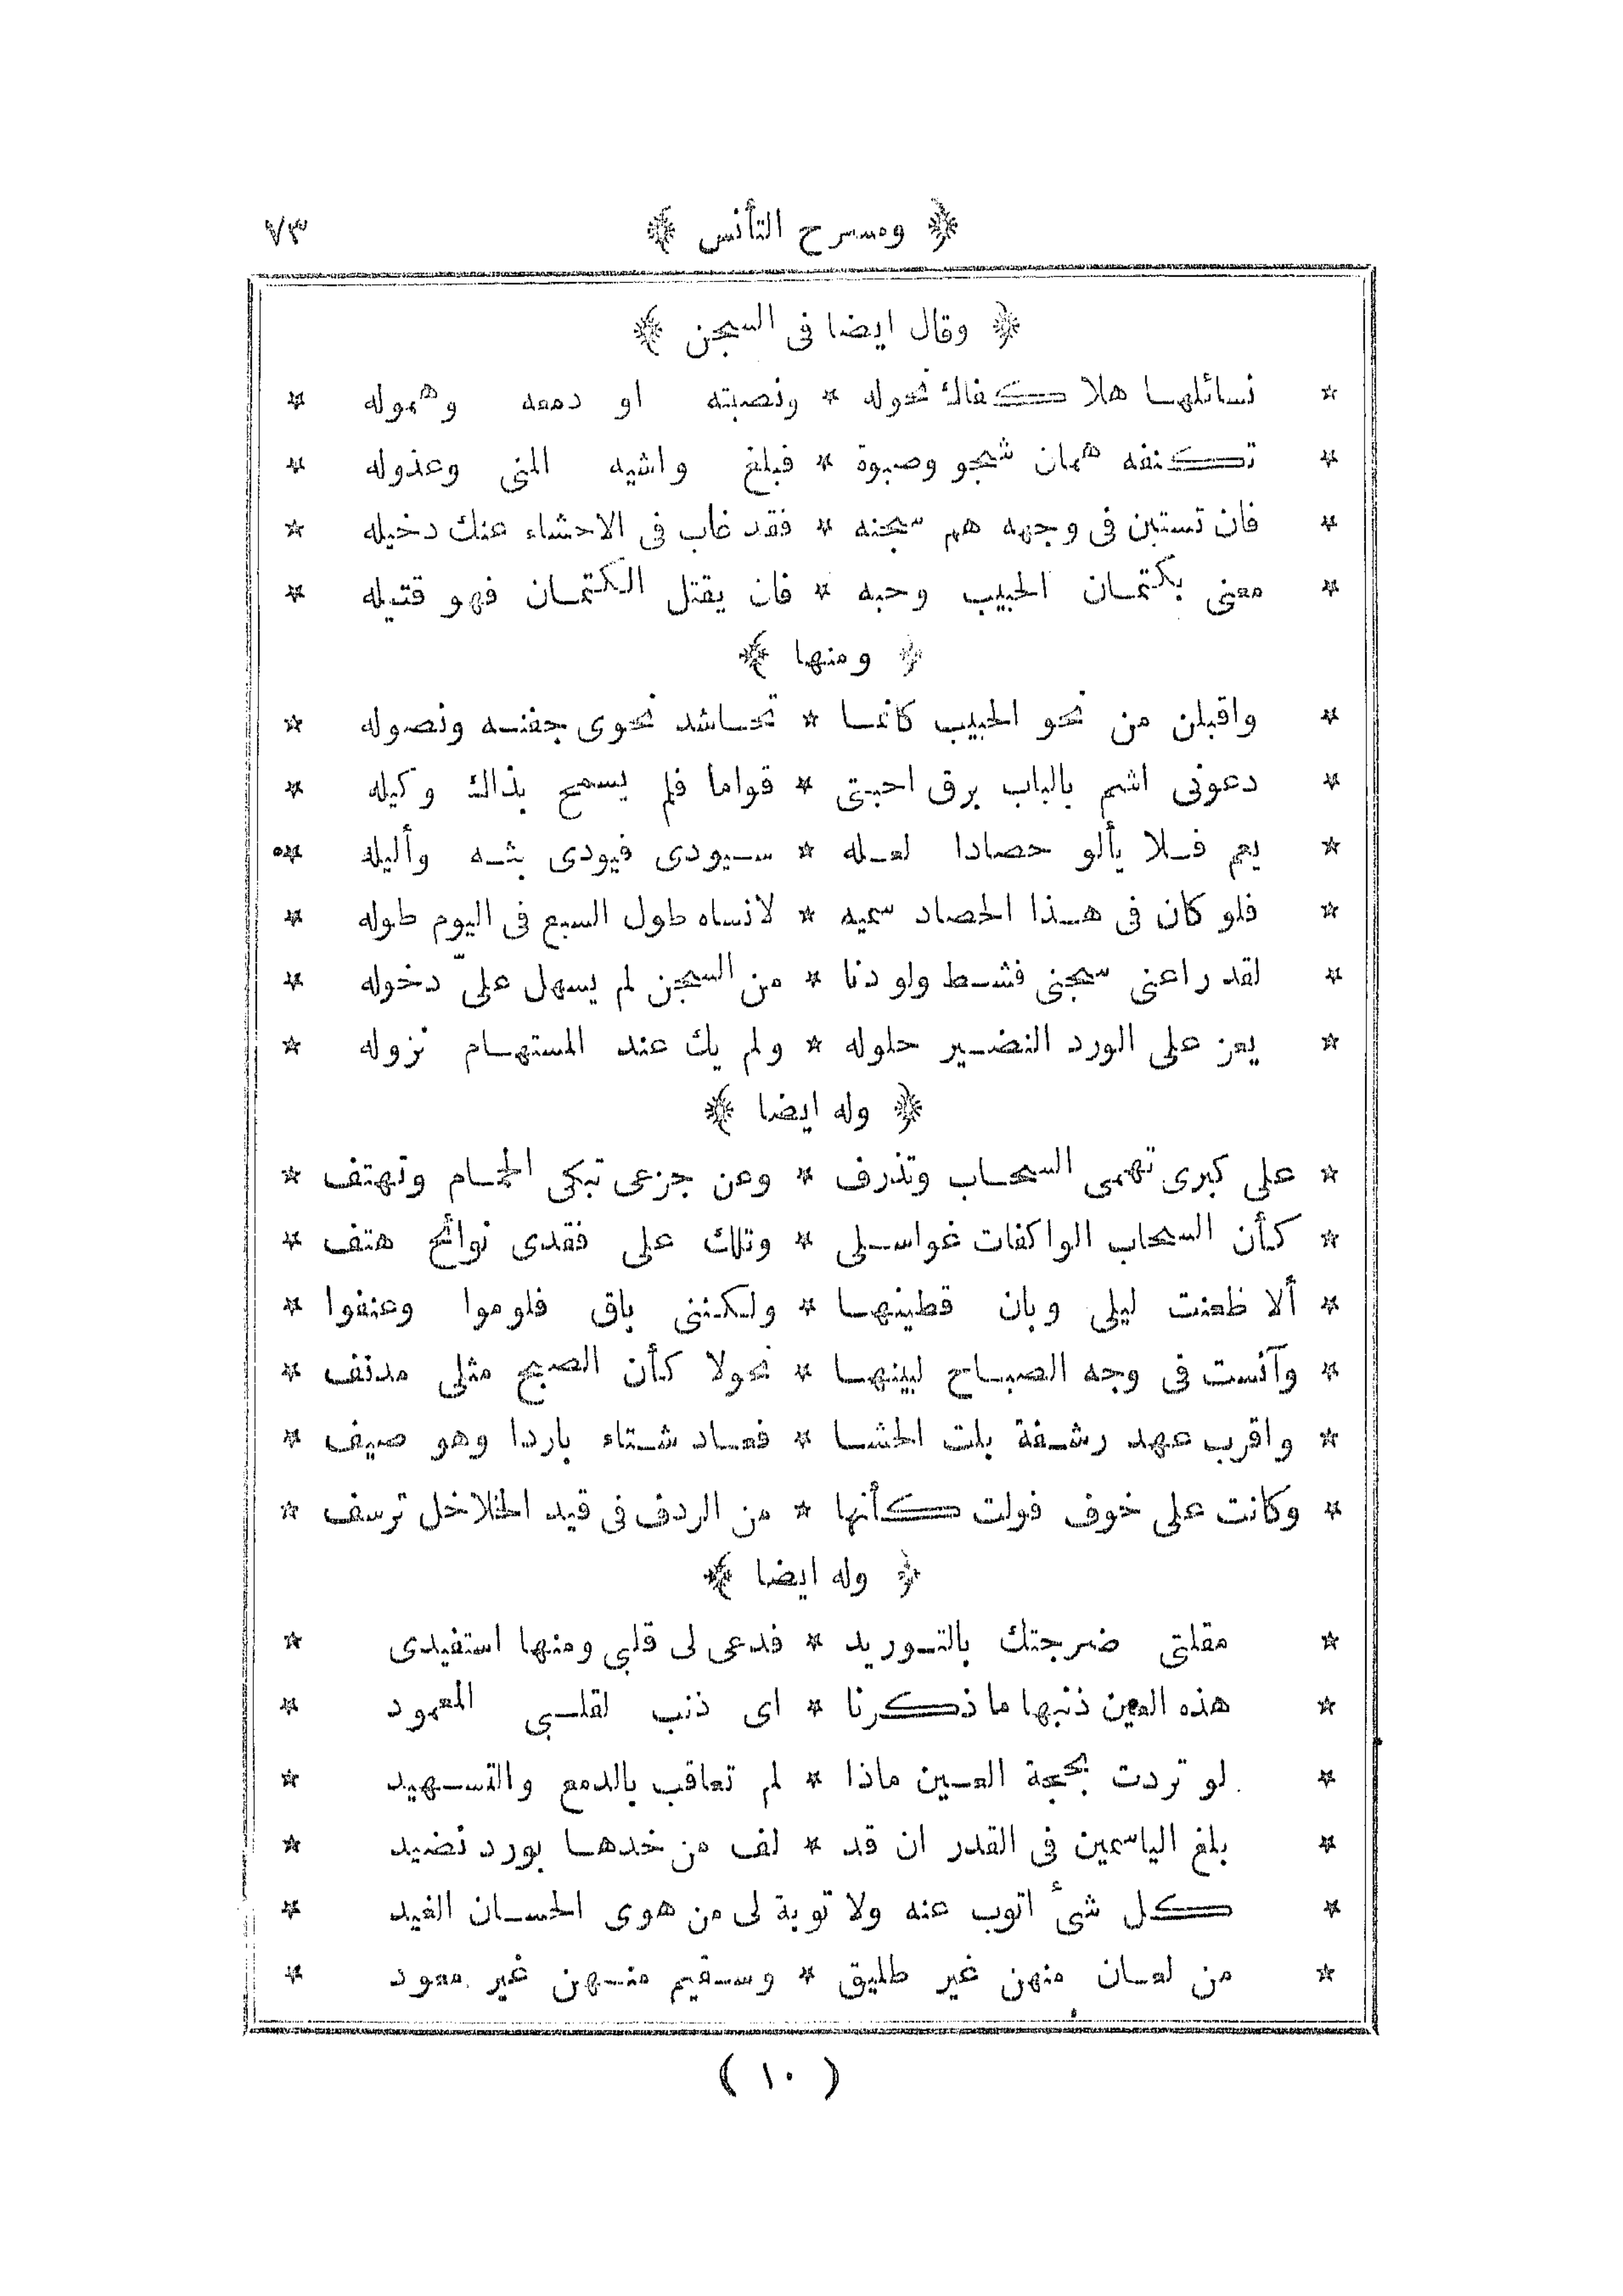 ﴿ ومسرح التأنس ﴾ ٧٣
﴿ وقال ايضا فى السجن ﴾
* نسائلهـا هلا كفاك نحوله * ونصبته او دمعه وهموله *
* تكنفه همان شجو وصبوة * فبلغ واشيه المنى وعذوله *
* فان تستبن فى وجهه هم سجنه * فقد غاب فى الاحشاء عنك دخيله *
* معنى بكتمـان الحبيب وحبه * فان يقتل الكتمـان فهو قتيله *
﴿ ومنها ﴾
* واقبلن من نحو الحبيب كانمـا * تحـاشد نحوى جفنـه ونصوله *
* دعونى اشم بالباب برق احبتى * قواما فلم يسمح بذاك وكيله *
* يعم فـلا يألو حصادا لعـله * سـيودى فيودى بثـه وأليله *
* فلو كان فى هـذا الحصاد سميه * لانساه طول السبع فى اليوم طوله *
* لقد راعنى سجنى فشـط ولو دنا * من السجن لم يسهل علىّ دخوله *
* يعز على الورد النضـير حلوله * ولم يك عند المستهـام نزوله *
﴿ وله ايضا ﴾
* على كبرى تهمى السحـاب وتذرف * وعن جزعى تبكى الحمـام وتهتف *
* كأن السحاب الواكفات غواسـلى * وتلك على فقدى نوائح هتف *
* ألا ظعنت ليلى وبان قطينهـا * ولكننى باق فلوموا وعنفوا *
* وآنست فى وجه الصبـاح لبينهـا * نحولا كأن الصبح مثلى مدنف *
* واقرب عهد رشـفة بلت الحشـا * فعـاد شـتاء باردا وهو صيف *
* وكانت على خوف فولت كأنها * من الردف فى قيد الخلاخل ترسف *
﴿ وله ايضا ﴾
* مقلتى ضرجتك بالتـوريد * فدعى لى قلبى ومنها استفيدى *
* هذه العين ذنبها ما ذكرنا * اى ذنب لقلـبى المعمود *
* لو تردت بحجة العـين ماذا * لم تعاقب بالدمع والتسـهيد *
* بلغ الياسمين فى القدر ان قد * لف من خدهـا بورد نضيد *
* كل شئ اتوب عنه ولا توبة لى من هوى الحسـان الغيد *
* من لعـان منهن غير طليق * وسـقيم منـهن غير معود *
( ١٠ )